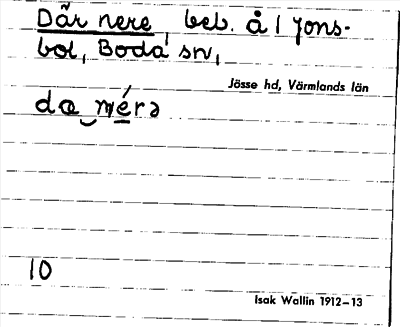 Där nere, beb. å l Jons-
bol, Boda sn,
Jösse hd, Värmlands län
da‿néra
10
Isak Wallin 1912–13